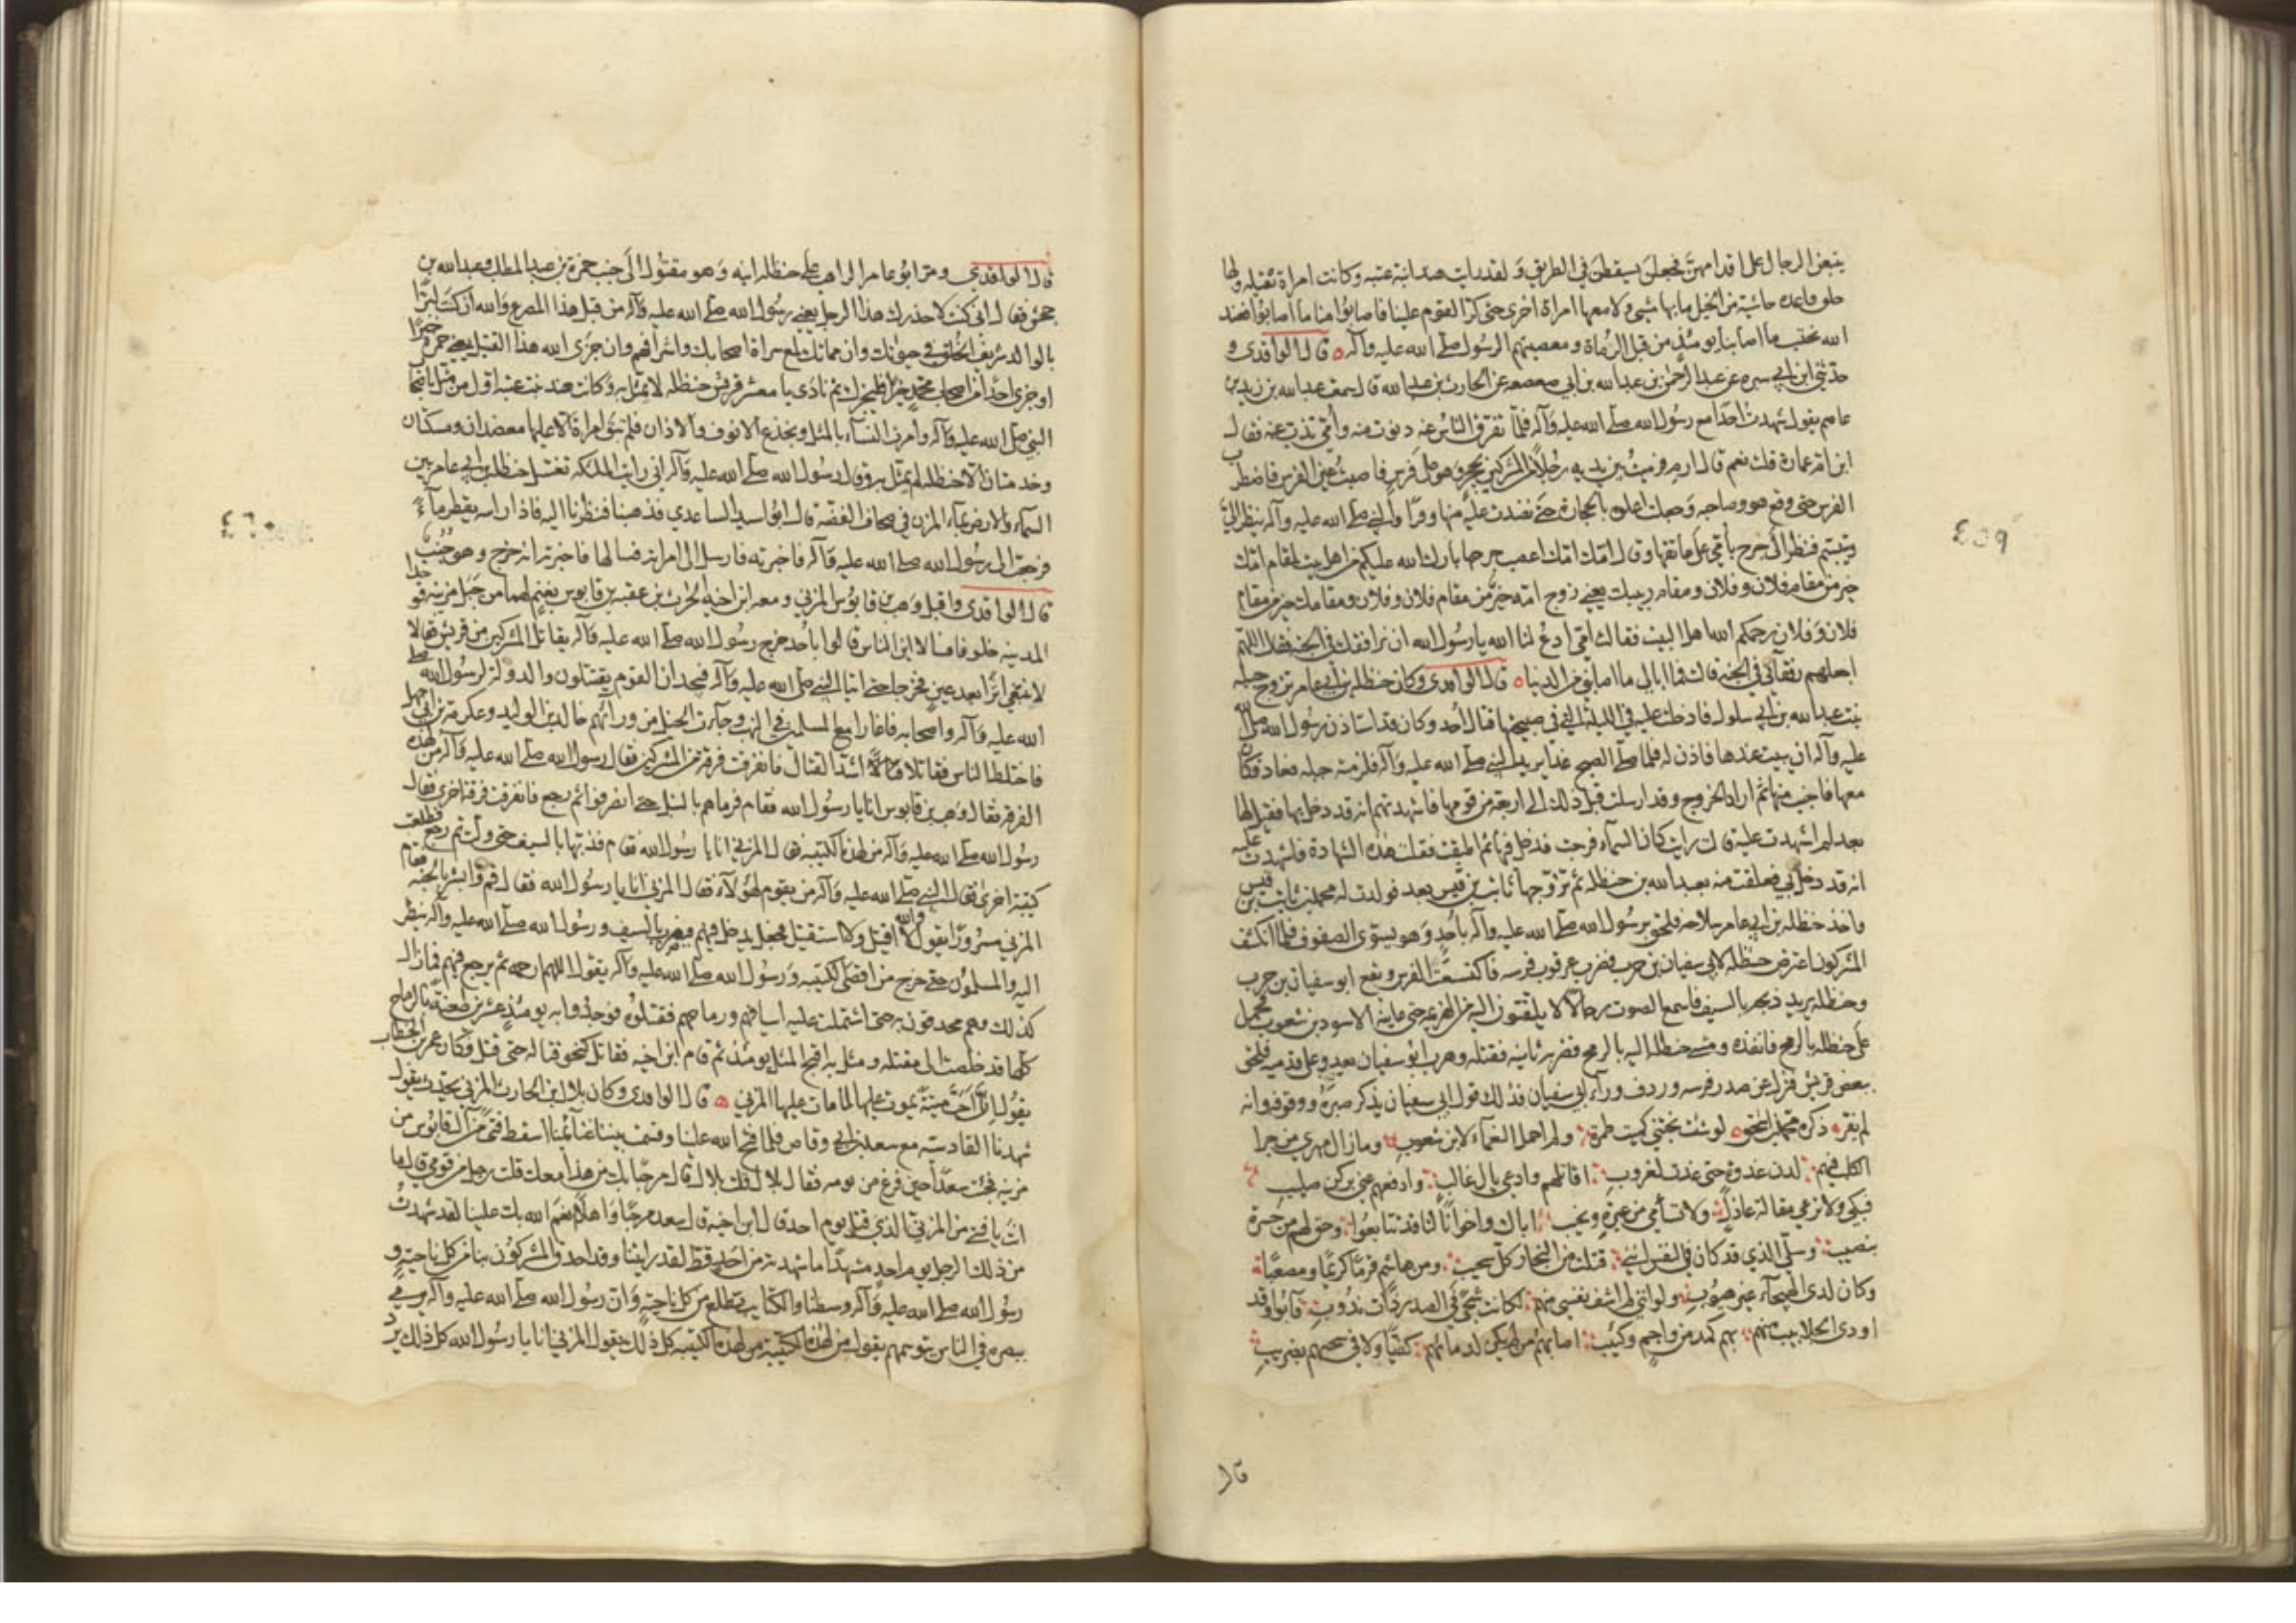 يتبعن الرجال على اقدامهن فجعلن يسقطن في الطريق ولقد رايت هند ابنة عتبة وكانت امراة ثقيلة ولها
خلق قاعدة خاشية من الخيل ما بها مشي ولا معها امراة اخرى حتى كر القوم علينا فاصابوا منا ما اصابوا فعند
الله نحتسب ما اصابنا يومئذ من قبل الرماة ومعصيتهم الرسول صلى الله عليه وآله ه قال الواقدي و
حدثني ابن ابي سبره عن عبد الرحمن بن عبد الله بن ابي صعصعه عن الحارث بن عبد الله قال سمعت عبد الله بن زيد بن
عاصم يقول شهدت احدا مع رسول الله صلى الله عليه وآله فلما تفرق الناس عنه دنوت منه وأمي تذب عنه فقال
ابن ام عمارة قلت نعم قال ارم فرميت بين يديه رجلا من المشركين بحجر وهو على فرس فاصبت عين الفرس فاضطرب
الفرس حتى وقع هو وصاحبه وجعلت اعلوه بالحجارة حتى نضدت عليه منها وقرا والنبي صلى الله عليه وآله ينظر الي
ويتبسم فنظر الى جرح بأمي على عاتقها وقال امك امك اعصب جرحها بارك الله عليكم من اهل بيت لمقام امك
خير من مقام فلان وفلان ومقام ربيبك يعني زوج امه خير من مقام فلان وفلان ومقامك خير من مقام
فلان وفلان رحمكم الله اهل البيت فقالت امي ادع لنا الله يا رسول الله ان نرافقك في الجنة فقال اللهم
اجعلهم رفقائي في الجنة قالت فما ابالي ما اصابني من الدنيا ه قال الواقدي وكان حنظلة بن ابي عامر تزوج جميلة
بنت عبد الله بن ابي سلول فادخلت عليه في الليلة التي في صبيحتها قتال أحد وكان قد استاذن رسول الله صلى الله
عليه وآله ان يبيت عندها فاذن له فلما صلى الصبح غدا يريد النبي صلى الله عليه وآله فلزمته جميله فعاد فكان
معها فاجنب منها ثم اراد الخروج وقد ارسلت قبل ذلك الى اربعة من قومها فاشهدتهم انه قد دخل بها فقيل لها
بعد لم اشهدت عليه قالت رايت كان السماء فرجت فدخل فيها ثم اطبقت فقلت هذه الشهادة فاشهدت عليه
انه قد دخل بي فعلقت منه بعبد الله بن حنظلة ثم تزوجها ثابت بن قيس بعد فولدت له محمد بن ثابت بن قيس
واخذ حنظلة بن ابي عامر سلاحه فلحق برسول الله صلى الله عليه وآله بأحد وهو يسوي الصفوف فلما انكشف
المشركون اعترض حنظلة لابي سفيان بن حرب فضرب عرقوب فرسه فاكتسعت الفرس ويقع ابو سفيان بن حرب
وحنظلة يريد ذبحه بالسيف فاسمع الصوت رجالا لا يلتفتون اليه من الهزيمة حتى عاينه الاسود بن شعوب فحمل
على حنظله بالرمح فانفذه ومشى حنظلة اليه بالرمح فضربه ثانية فقتله وهرب ابو سفيان يعدو على قدميه فلحق
ببعض قريش فنزل عن صدر فرسه وردف وراء ابي سفيان فذلك قول ابي سفيان يذكر صبره ووقوفه وانه
لم يفر ذكره محمد بن اسحق ه لو شئت نجتني كميت طمرة ولم احمل النعماء لابن شعوب وما زال مهري مزجر
الكلب فيهم لدن غدوة حتى غدت لغروب اقاتلهم وادعى يال غالب وادفعهم عني بركن صليب
فبكي ولا ترعي مقالة عاذل ولا تسأمي من عبرة ونحيب اباك واخوانا لنا قد تتابعوا وحق لهم من حسرة
بنصيب وسلى الذي قد كان في النفس انني قتلت من النجار كل نجيب ومن هاشم قرما كريما ومصعبا
وكان لدى الهيجاء غير هيوب ولو انني لم اشف نفسي منهم لكانت شجى في الصدر ذات ندوب فآبوا وقد
اودى الجلابيب منهم بهم كمد من واجم وكئيب اصابهم من لم يكن لدمائهم كفيا ولا في سنخهم بضريب
قال
٤٥٩
قال الواقدي ومر ابو عامر الراهب على حنظلة ابنه وهو مقتول الى جنب حمزة بن عبد المطلب وعبد الله بن
جحش فقال ان كنت لاحذرك هذا الرجل يعني رسول الله صلى الله عليه وآله من قبل هذا المصرع والله ان كنت لبرا
بالوالد شريف الخلق في حيوتك وان مماتك لمع سراة اصحابك واشرافهم وان جزى الله هذا القتيل يعني حمزة خيرا
او جزى احدا من اصحاب محمد خيرا فليجزك ثم نادى يا معشر قريش حنظله لا يمثل به وكانت هند بنت عتبة اول من مثل باصحاب
النبي صلى الله عليه وآله وأمرت النساء بالمثل وبجدع الانوف والاذان فلم تبق امراة الا عليها معضدان ومسكتان
وخدمتان الا حنظله لم يمثل به وقال رسول الله صلى الله عليه وآله اني رايت الملئكة تغسل حنظلة بن ابي عامر بين
السماء والارض بماء المزن في صحاف الفضة قال ابو اسيد الساعدي فذهبنا فنظرنا اليه فاذا راسه يقطر ماء
فرجعت الى رسول الله صلى الله عليه وآله فاخبرته فارسل الى امراته فسالها فاخبرته انه خرج وهو جنب
قال الواقدي واقبل وهب بن قابوس المزني ومعه ابن اخيه الحرث بن عقبه بن قابوس بغنم لهما من جبل مزينة فوجدا
المدينه خلوفا فسالا اين الناس قالوا بأحد خرج رسول الله صلى الله عليه وآله يقاتل المشركين من قريش فقالا
لا نبتغي اثرا بعد عين فخرجا حتى اتيا النبي صلى الله عليه وآله فيجدان القوم يقتتلون والدولة لرسول الله صلى
الله عليه وآله واصحابه فاغارا مع المسلمين في النهب وجآءت الخيل من ورآئهم خالد بن الوليد وعكرمة بن ابي جهل
فاختلط الناس فقاتلا اشد القتال فانفرقت فرقة من المشركين فقال رسول الله صلى الله عليه وآله من لهذه
الفرقة فقال وهب بن قابوس انا يا رسول الله فقام فرماهم بالنبل حتى انصرفوا ثم رجع فانفرقت فرقة اخرى فقال
رسول الله صلى الله عليه وآله من لهذه الكتيبه فقال المزني انا يا رسول الله فقام فذبها بالسيف حتى ولت ثم رجع فطلعت
كتيبة اخرى فقال النبي صلى الله عليه وآله من يقوم لهؤلآء فقال المزني انا يا رسول الله فقال قم وابشر بالجنة فقام
المزني مسرورا يقول والله لا اقيل ولا استقيل فجعل يدخل فيهم فيضرب بالسيف ورسول الله صلى الله عليه وآله ينظر
اليه والمسلمون حتى خرج من اقصى الكتيبه ورسول الله صلى الله عليه وآله يقول اللهم ارحمه ثم يرجع فيهم فما زال
كذلك وهم محدقون به حتى اشتملت عليه اسيافهم ورماحهم فقتلوه فوجد به يومئذ عشرين طعنة بالرماح
كلها قد خلصت الى مقتله ومثل به اقبح المثل يومئذ ثم قام ابن اخيه فقاتل كنحو قتاله حتى قتل وكان عمر بن الخطاب
يقول ان احب ميتة يموت عليها لما مات عليها المزني ه قال الواقدي وكان بلال ابن الحارث المزني يحدث يقول
شهدنا القادسية مع سعد بن ابي وقاص فلما فتح الله علينا وقسمت بيننا غنآئمنا اسقط فتى من آل قابوس من
مزينة فجئت سعدا حين فرغ من نومه فقال بلال قلت بلال قال مرحبا بك من هذا معك قلت رجل من قومي قال ما
انت يا فتى من المزني الذي قتل يوم احد قال ابن اخيه قال سعد مرحبا واهلا انعم الله بك علينا لقد شهدت
من ذلك الرجل يوم احد مشهدا ما شهدته من احد قط لقد رايتنا وقد احدق المشركون بنا من كل ناحية و
رسول الله صلى الله عليه وآله وسطنا والكتايب تطلع من كل ناحية وان رسول الله صلى الله عليه وآله يرمي
ببصره في الناس يتوسمهم يقول من لهذه الكتيبة من لهذه الكتيبه كل ذلك يقول المزني انا يا رسول الله كل ذلك يرد